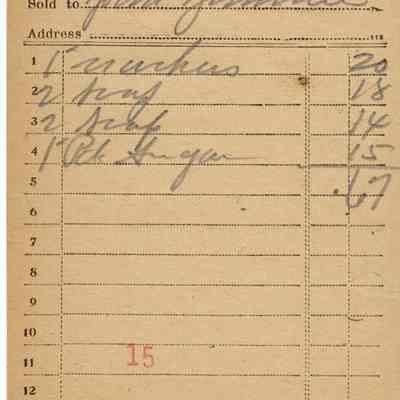 Sold to
Address
1 1 20
2 2 Soap 18
3 2 Soap 14
4 1 15
5 .67
6
7
8
9
10
11 15
12